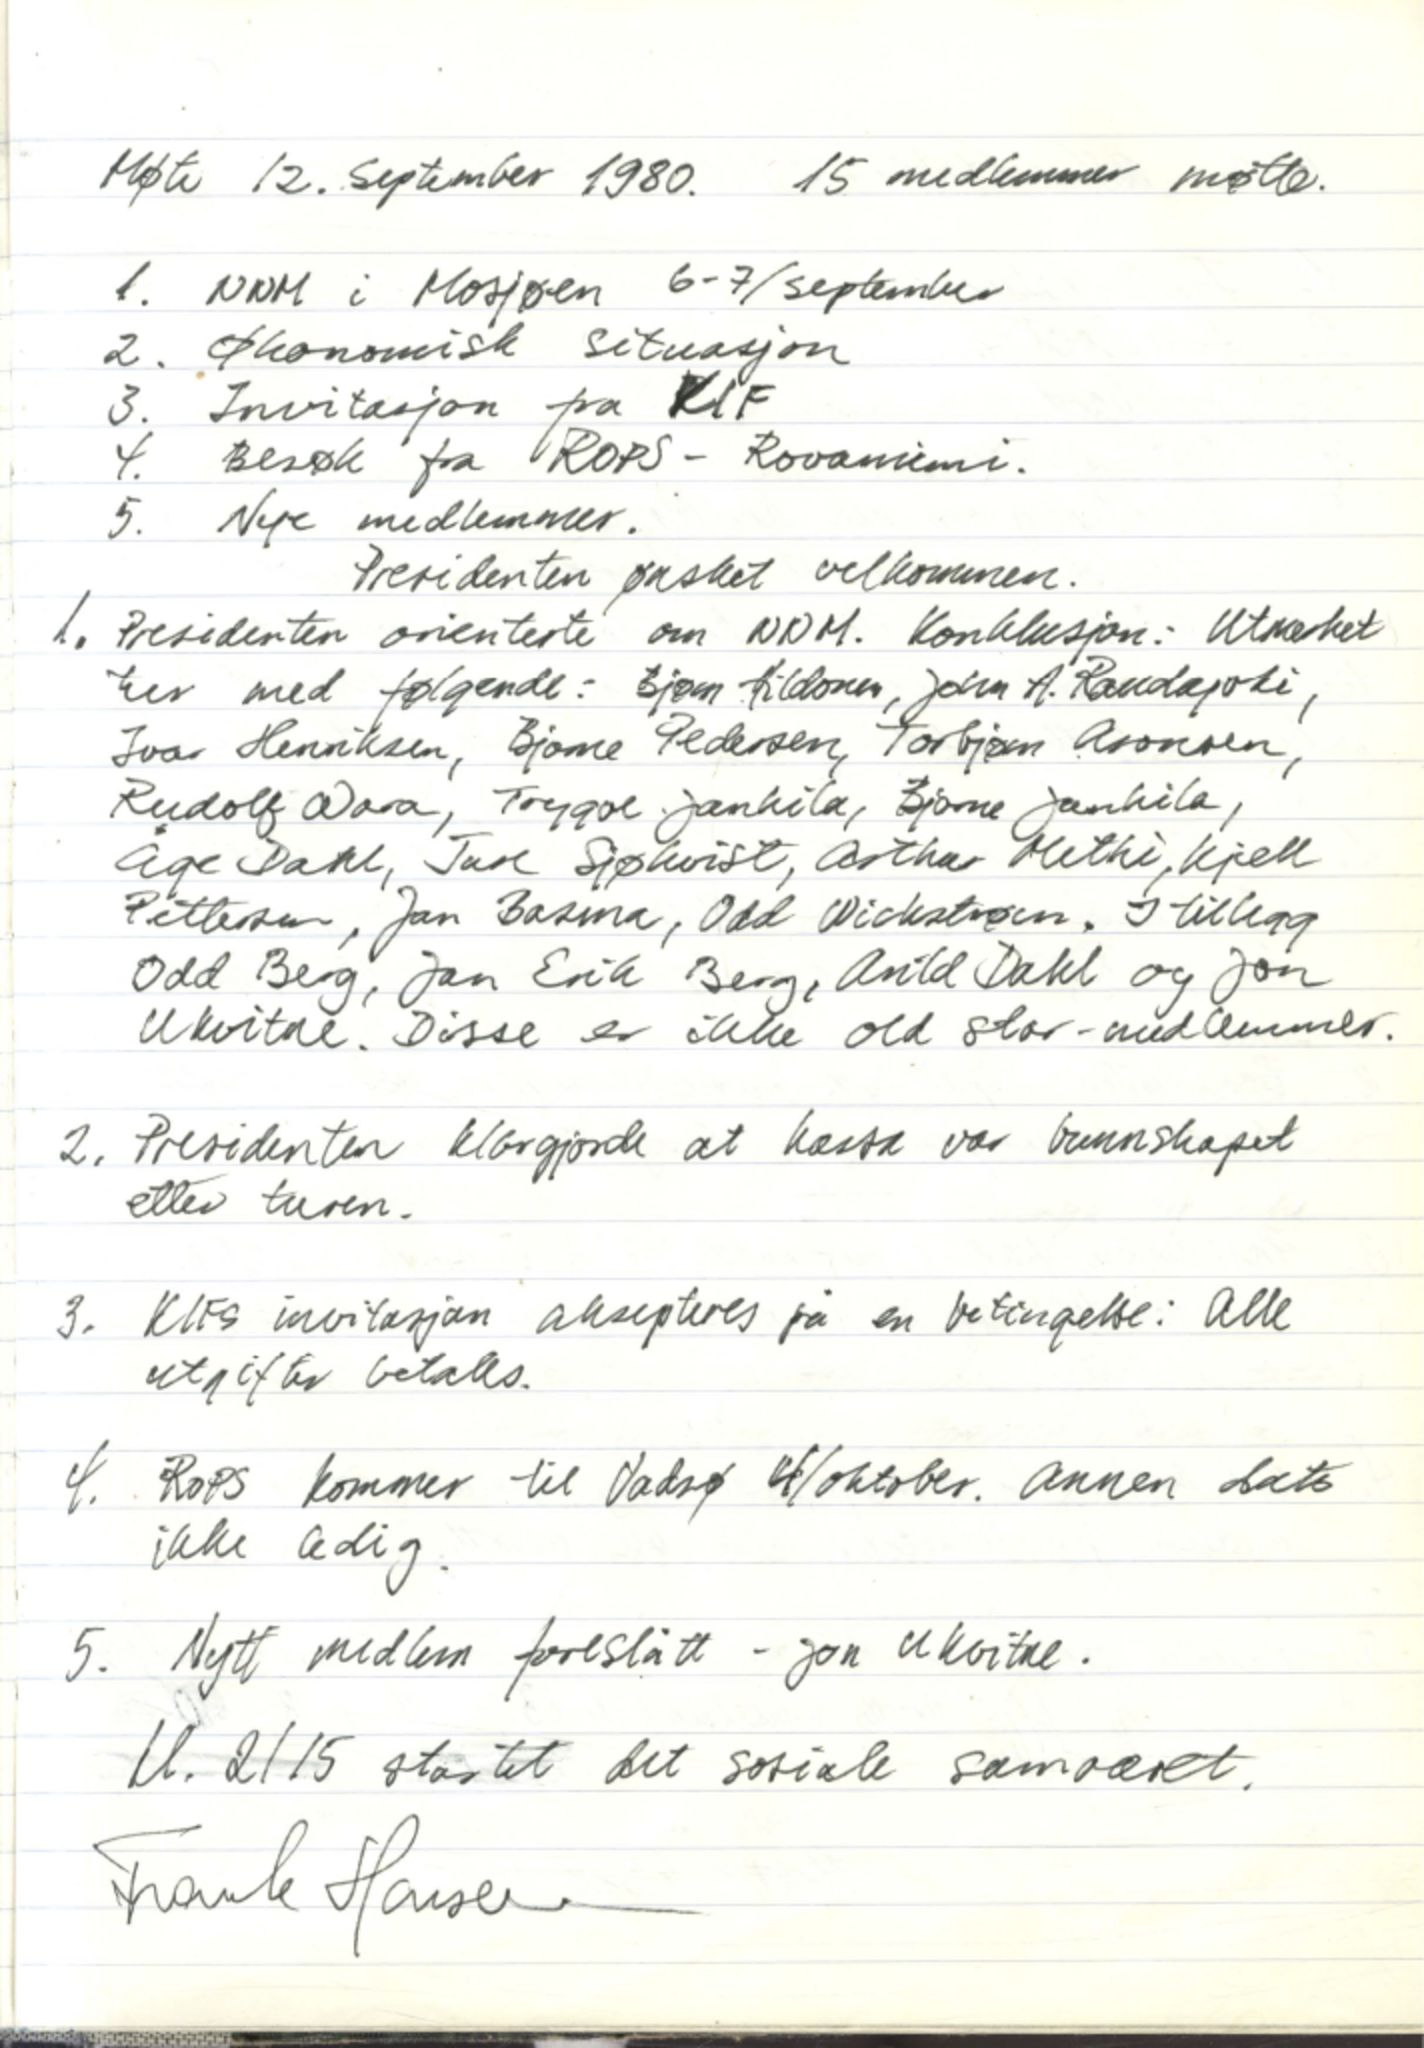 Møte 12. September 1980. 15 medlemmer møtte.
1. NNM i Mosjøen 6-7/september
2. Økonomisk situasjon
3. Invitasjon fra KIF
4. Besøk fra ROPS - Rovaniemi.
5. Nye medlemmer.
Presidenten ønsket velkommen.
1. Presidenten orienterte om NNM. Konklusjon: Utmerket
tur med følgende: Bjørn Hildonen, John A. Randapski,
Ivar Henriksen, Bjarne Pedersen, Torbjørn Aronsen,
Rudolf Wara, Trygve Jankila, Bjarne Jankila,
Åge Dahl, Ture Sjøkvist, Arthur Methi, Kjell
Pettersen, Jan Basma, Odd Wickstrøm. I tillegg
Odd Berg, Jan Erik Berg, Arild Dahl og Jon
Ukvitne. Disse er ikke old star-medlemmer.
2. Presidenten klargjorde at kassa var bunnskapet
etter turen.
3. KIFs invitasjon aksepteres på en betingelse: Alle
utgifter betales.
4. ROPS kommer til Vadsø 4/oktober. Annen dato
ikke ledig.
5. Nytt medlem foreslått - Jon Ukvitne.
Kl. 2115 startet det sosiale samværet.
Frank Hansen